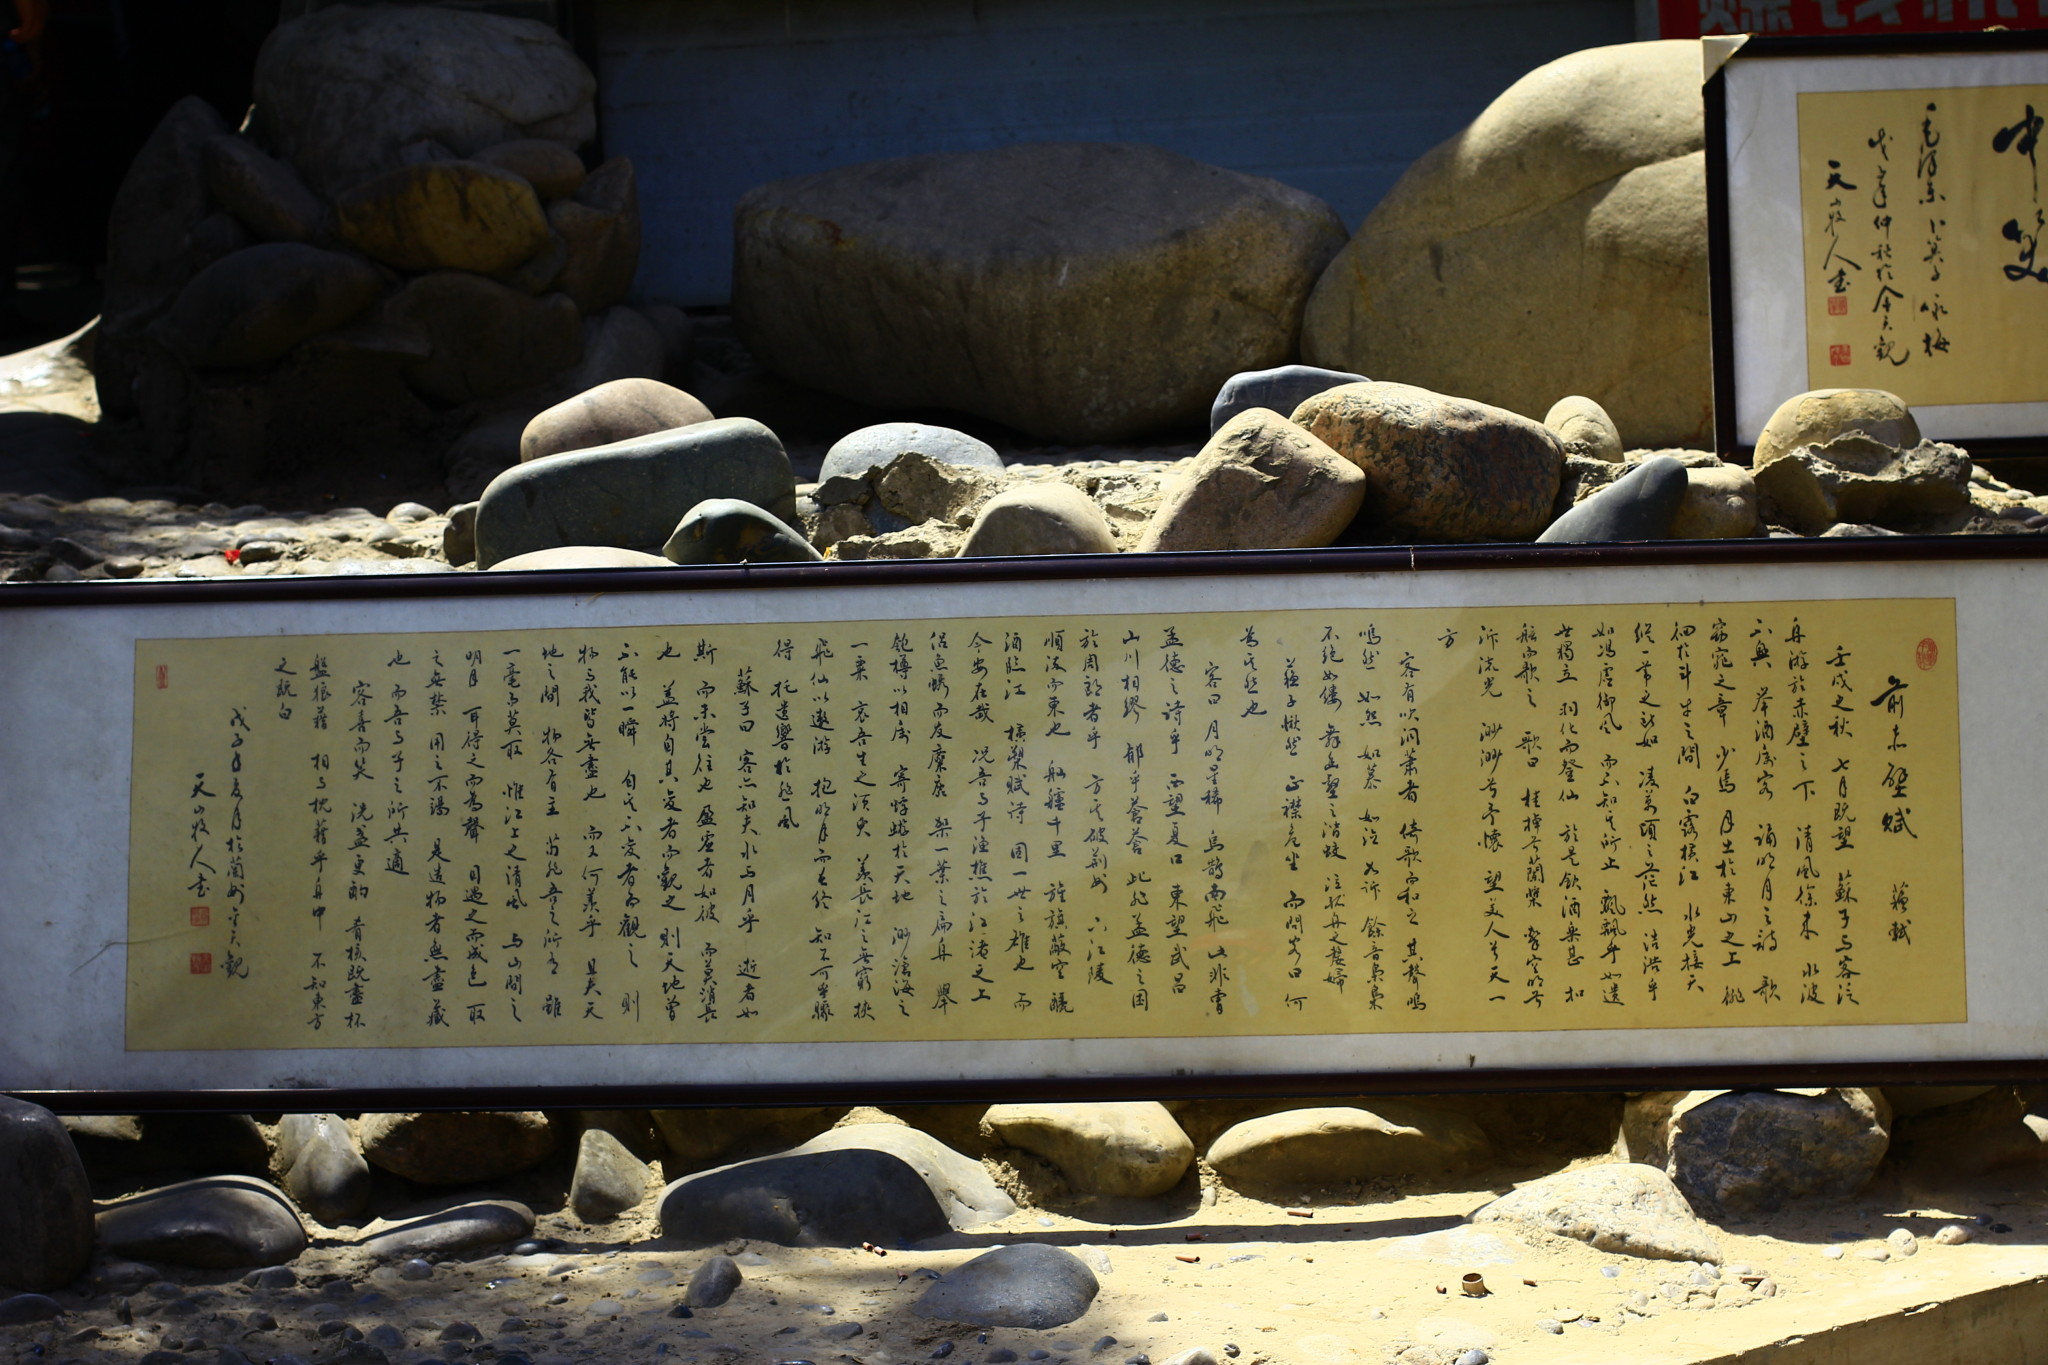 前赤壁賦 蘇軾
壬戌之秋 七月既望 蘇子与客泛
舟游於赤壁之下 清風徐来 水波
不興 举酒属客 诵明月之詩 歌
窈窕之章 少焉 月出於東山之上 徘
徊於斗牛之間 白露横江 水光接天
縱一葦之所如 凌萬頃之茫然 浩浩乎
如馮虚御風 而不知其所止 飄飄乎如遺
世獨立 羽化而登仙 於是飲酒樂甚 扣
舷而歌之 歌曰 桂棹兮蘭槳 擊空明兮
泝流光 渺渺兮予懷 望美人兮天一
方
客有吹洞蕭者 倚歌而和之 其聲嗚
嗚然 如怨 如慕 如泣 如訴 餘音裊裊
不絕如縷 舞幽壑之潛蛟 泣孤舟之嫠婦
蘇子愀然 正襟危坐 而問客曰 何
為其然也
客曰 月明星稀 烏鵲南飛 此非曹
孟德之詩乎 西望夏口 東望武昌
山川相繆 郁乎蒼蒼 此非孟德之困
於周郎者乎 方其破荆州 下江陵
順流而東也 舳艫千里 旌旗蔽空 釃
酒臨江 横槊賦诗 固一世之雄也 而
今安在哉 况吾与子渔樵於江渚之上
侣魚蝦而友麋鹿 駕一葉之扁舟 舉
匏樽以相属 寄蜉蝣於天地 渺滄海之
一粟 哀吾生之須臾 羡長江之無窮 挾
飛仙以遨游 抱明月而长终 知不可乎驟
得 托遺響於悲風
蘇子曰 客亦知夫水与月乎 逝者如
斯 而未嘗往也 盈虚者如彼 而莫消長
也 蓋将自其变者而觀之 則天地曾
不能以一瞬 自其不变者而觀之 則
物与我皆無盡也 而又何羡乎 且夫天
地之間 物各有主 苟非吾之所有 雖
一毫而莫取 惟江上之清風 与山間之
明月 耳得之而為聲 目遇之而成色 取
之無禁 用之不竭 是造物者無盡藏
也 而吾与子之所共適
客喜而笑 洗盏更酌 肴核既盡 杯
盤狼藉 相与枕藉乎舟中 不知東方
之既白
戊子年夏月於蘭州金天觀
天山牧人書
中笑
毛澤東卜算子咏梅
戊子年仲秋於金天觀
天山牧人書